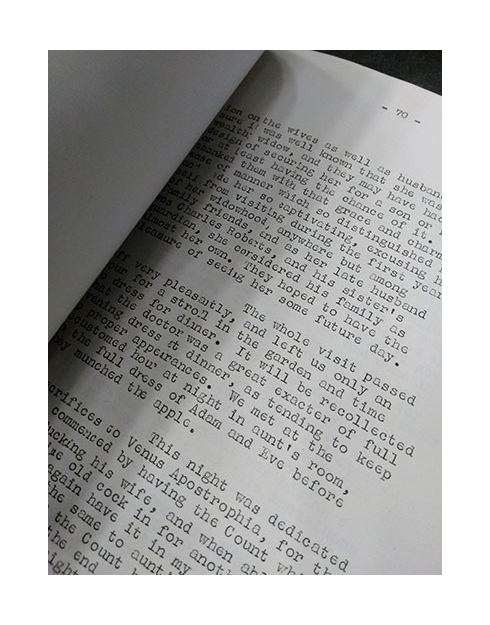 - 70 -
ion on the wives as well as husban
sure it was well known that she was
wealth widow, and they may have had
design of securing her for son or
or at least having the chance of it.
thanked them with that grace and charm
ease of manner which so distinguished
and her so captivating, excusing he
self from visiting during the first year
her widowhood, anywhere but among
family friends, and as her late husband
was Charles Roberts, and his sister's
guardian, she considered his family as
almost her own. They hoped to have the
leasure of seeing her some future day.
The whole visit passed
ff very pleasantly, and left us only an
our for a stroll in the garden and time
o dress for dinner. It will be recollected
hat the doctor was a great exacter of full
vening dress at dinner, as tending to keep
proper appearances. We met at the
customed hour at night in aunt's room,
the full dress of Adam and Eve before
ey munched the apple.
This night was dedicated
crifices to Venus Apostrophia, for the
commenced by having the Count whi
ucking his wife, and when
ue old cock in for anoth
again have it in my
the same to aunt
the Count h
the end
ight